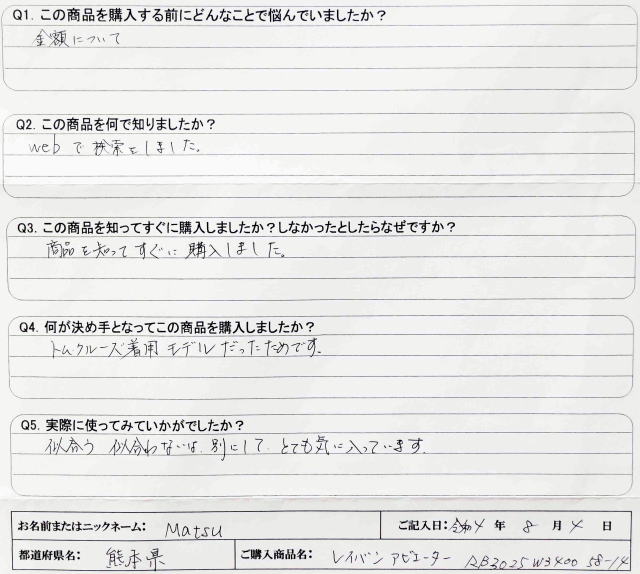 Q1. この商品を購入する前にどんなことで悩んでいましたか？
金額について
Q2. この商品を何で知りましたか？
webで検索をしました。
Q3. この商品を知ってすぐに購入しましたか？しなかったとしたらなぜですか？
商品を知ってすぐに購入しました。
Q4. 何が決め手となってこの商品を購入しましたか？
トムクルーズ着用モデルだったためです。
Q5. 実際に使ってみていかがでしたか？
似合う似合わないは、別にして、とても気に入っています。
お名前またはニックネーム： Matsu ご記入日：令和4年8月4日
都道府県名： 熊本県 ご購入商品名： レイバン アビエーター RB3025 W3400 58-14